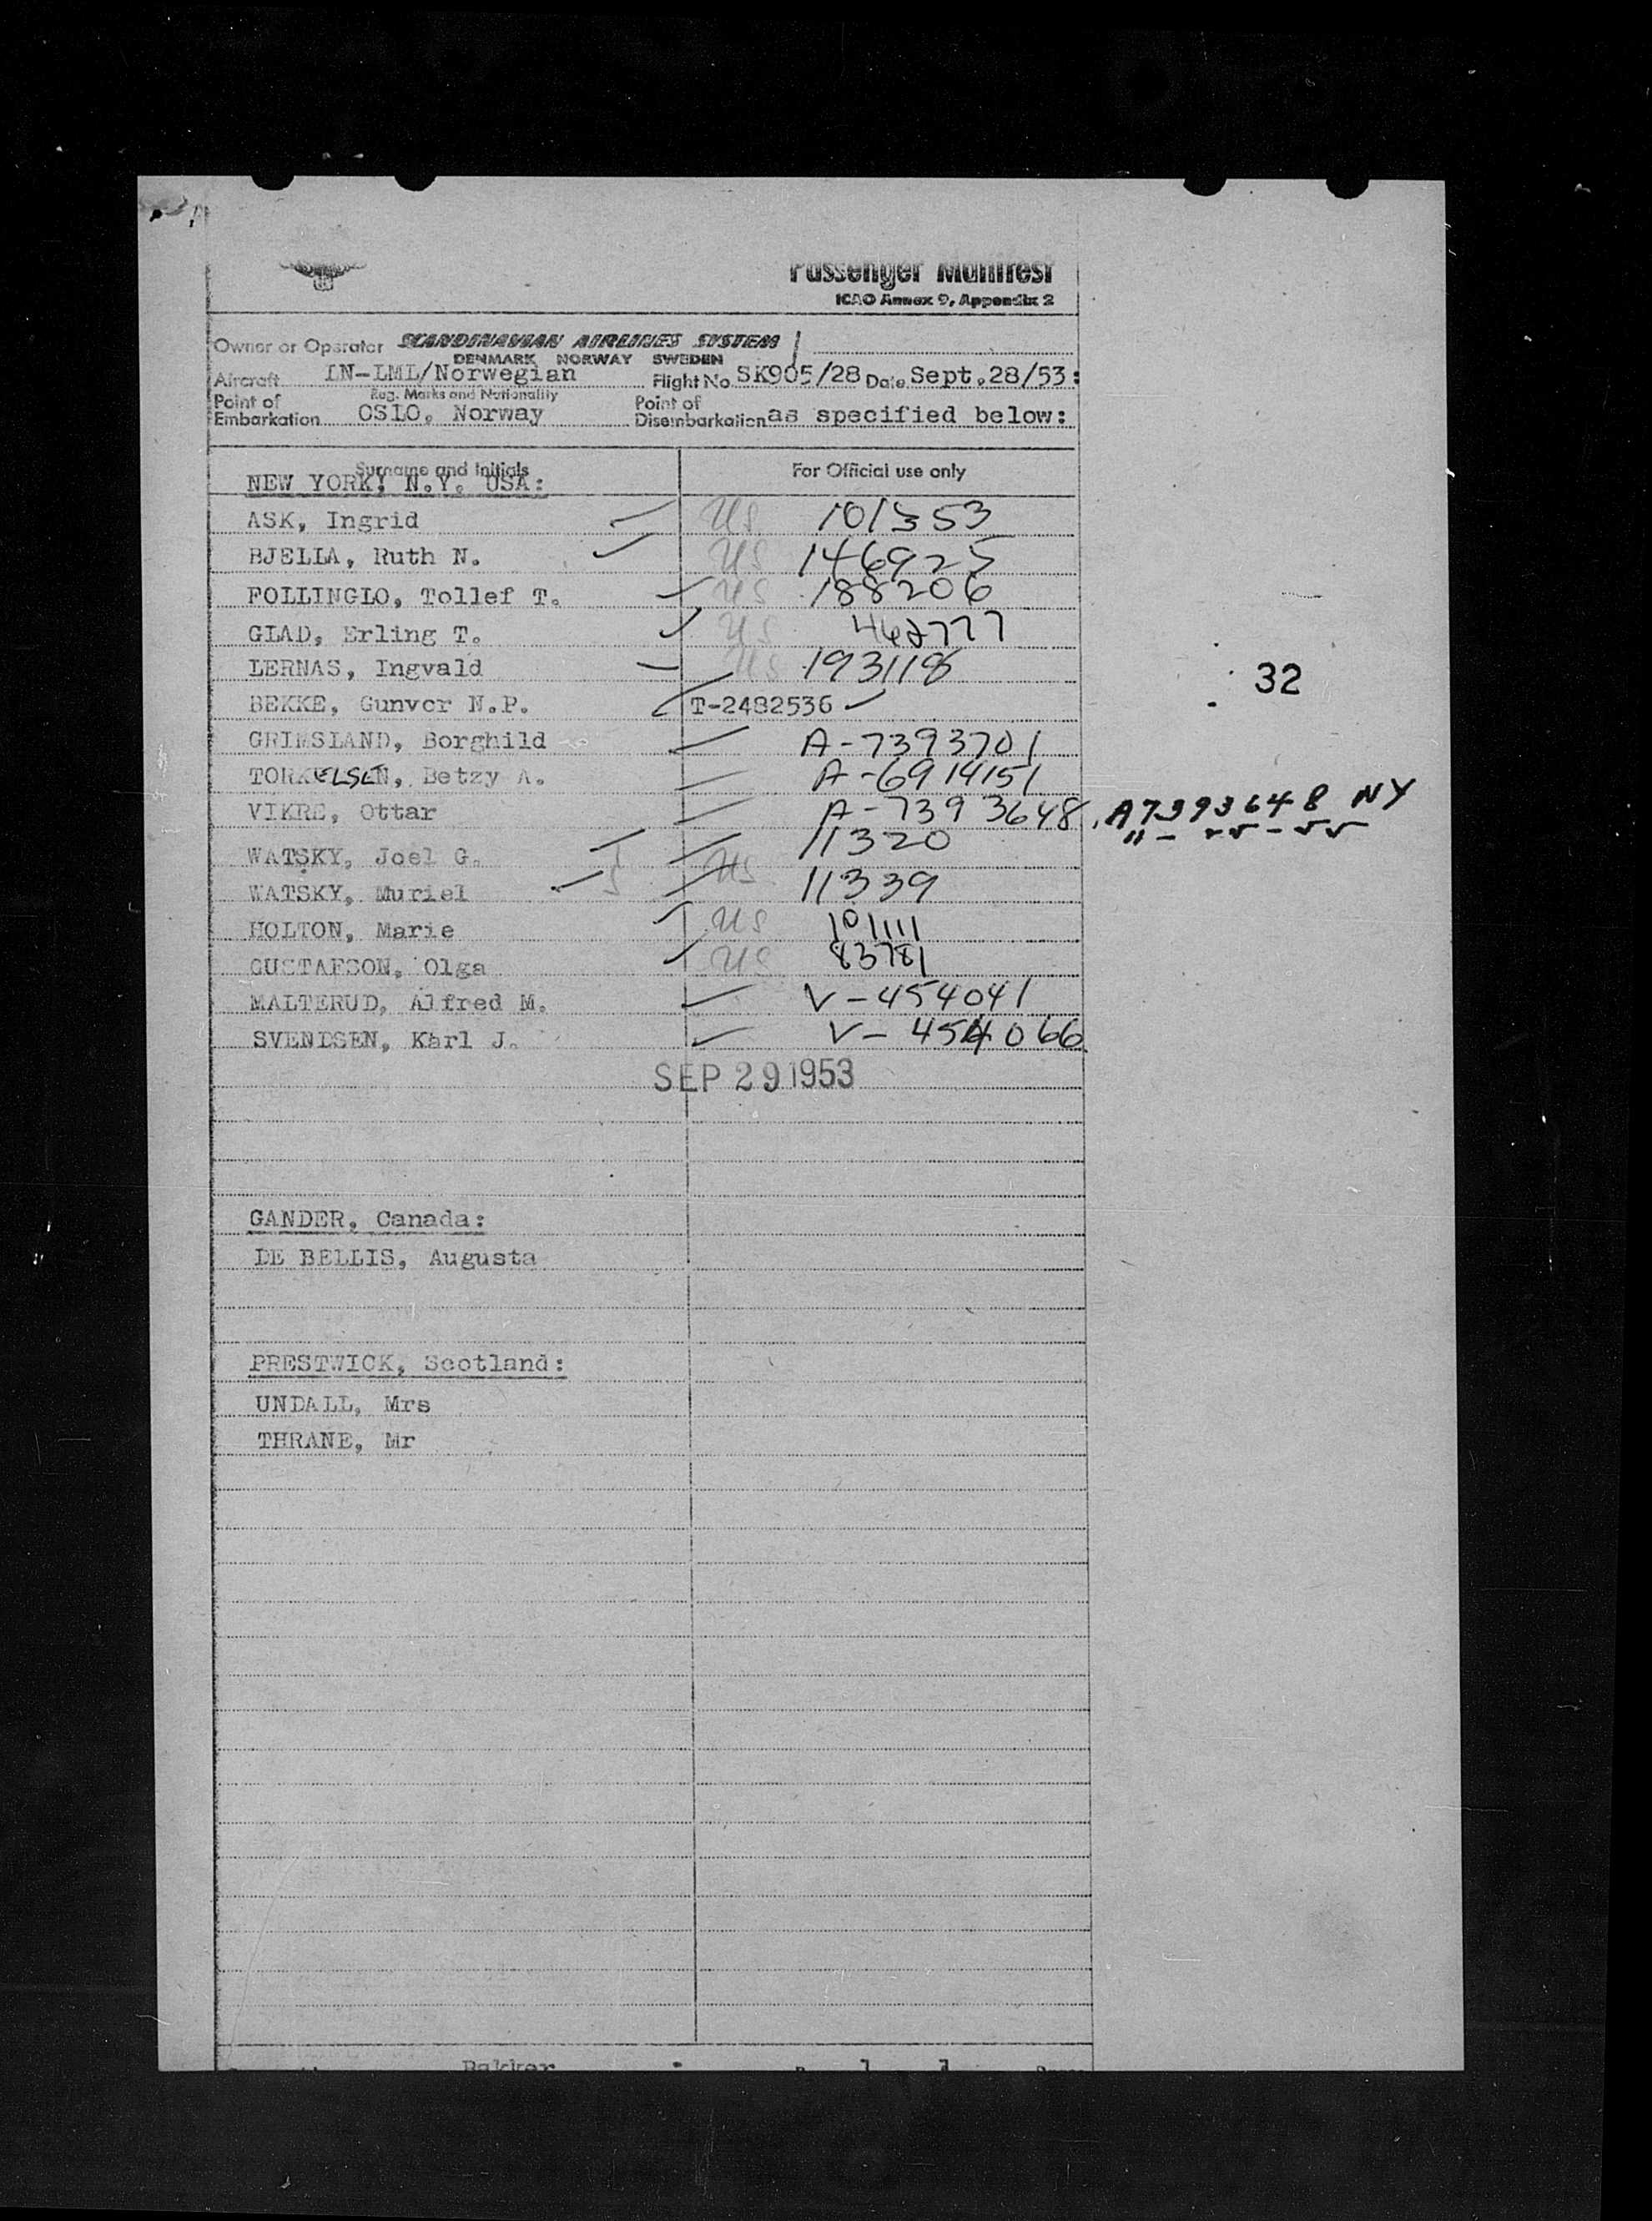 Passenger Manifest
ICAO Annex 9, Appendix 2
Owner or Operator SCANDINAVIAN AIRLINES SYSTEM
DENMARK NORWAY SWEDEN
Aircraft LN-LML/Norwegian Flight No. SK905/28 Date Sept.28/53:
Reg. Marks and Nationality
Point of Embarkation OSLO, Norway Point of Disembarkation as specified below:
Surname and Initials For Official use only
NEW YORK, N.Y. USA:
ASK, Ingrid US 101353
BJELLA, Ruth N. US 146925
FOLLINGLO, Tollef T. US 188206
GLAD, Erling T. US 462777
LERNAS, Ingvald US 193118
32
BEKKE, Gunvor N.P. T-2482536
GRIMSLAND, Borghild A-7393701
TORKELSEN, Betzy A. A-6914151
VIKRE, Ottar A-7393648 A7393648 NY
WATSKY, Joel G. 11320
WATSKY, Muriel US 11339
HOLTON, Marie US 101111
GUSTAFSON, Olga US 83781
MALTERUD, Alfred M. V-454041
SVENDSEN, Karl J. V-454066
SEP 29 1953
GANDER, Canada:
DE BELLIS, Augusta
PRESTWICK, Scotland:
UNDALL, Mrs
THRANE, Mr
Bakker